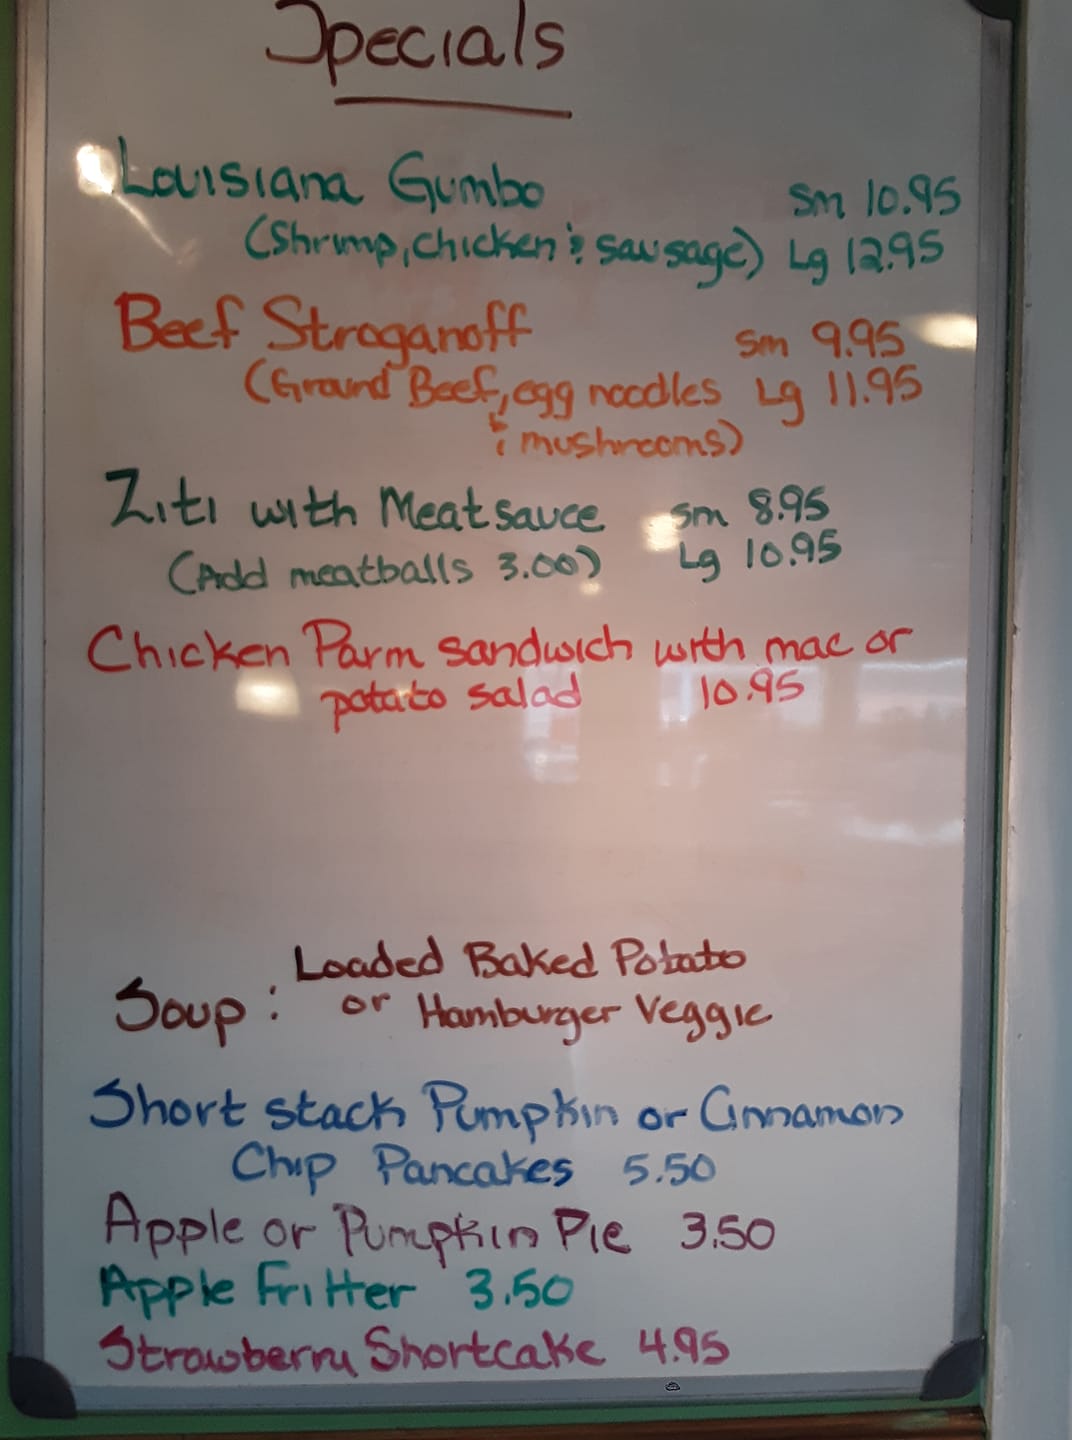 Specials
Louisiana Gumbo Sm 10.95
(Shrimp, chicken & sausage) Lg 12.95
Beef Stroganoff Sm 9.95
(Ground Beef, egg noodles Lg 11.95
& mushrooms)
Ziti with Meatsauce Sm 8.95
(Add meatballs 3.00) Lg 10.95
Chicken Parm sandwich with mac or
potato salad 10.95
Loaded Baked Potato
Soup: or Hamburger Veggie
Short stack Pumpkin or Cinnamon
Chip Pancakes 5.50
Apple or Pumpkin Pie 3.50
Apple Fritter 3.50
Strawberry Shortcake 4.95